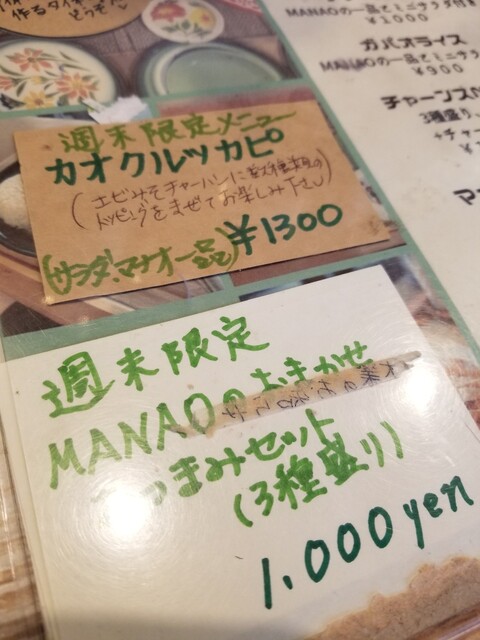 作るタイ
どうぞ
MANAOの一品とミニサラダ付
¥1000
ガパオライス
MANAOの一品とミニサラ
¥900
チャーンス
3種盛り
+チャー
週末限定メニュー
カオクルックカピ
(エビみそチャーハンに数種類の
トッピングをまぜてお楽しみ下さい)
¥1300
(サラダ、マナオ一品)
週末限定
MANAOのおまかせ
つまみセット
(3種盛り)
1.000yen